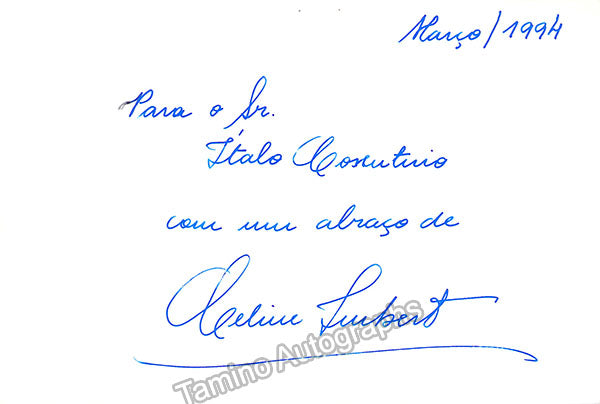 Março/1994
Para o Sr.
Ítalo Cosentino
com um abraço de
Celine Imbert
Tamino Autographs